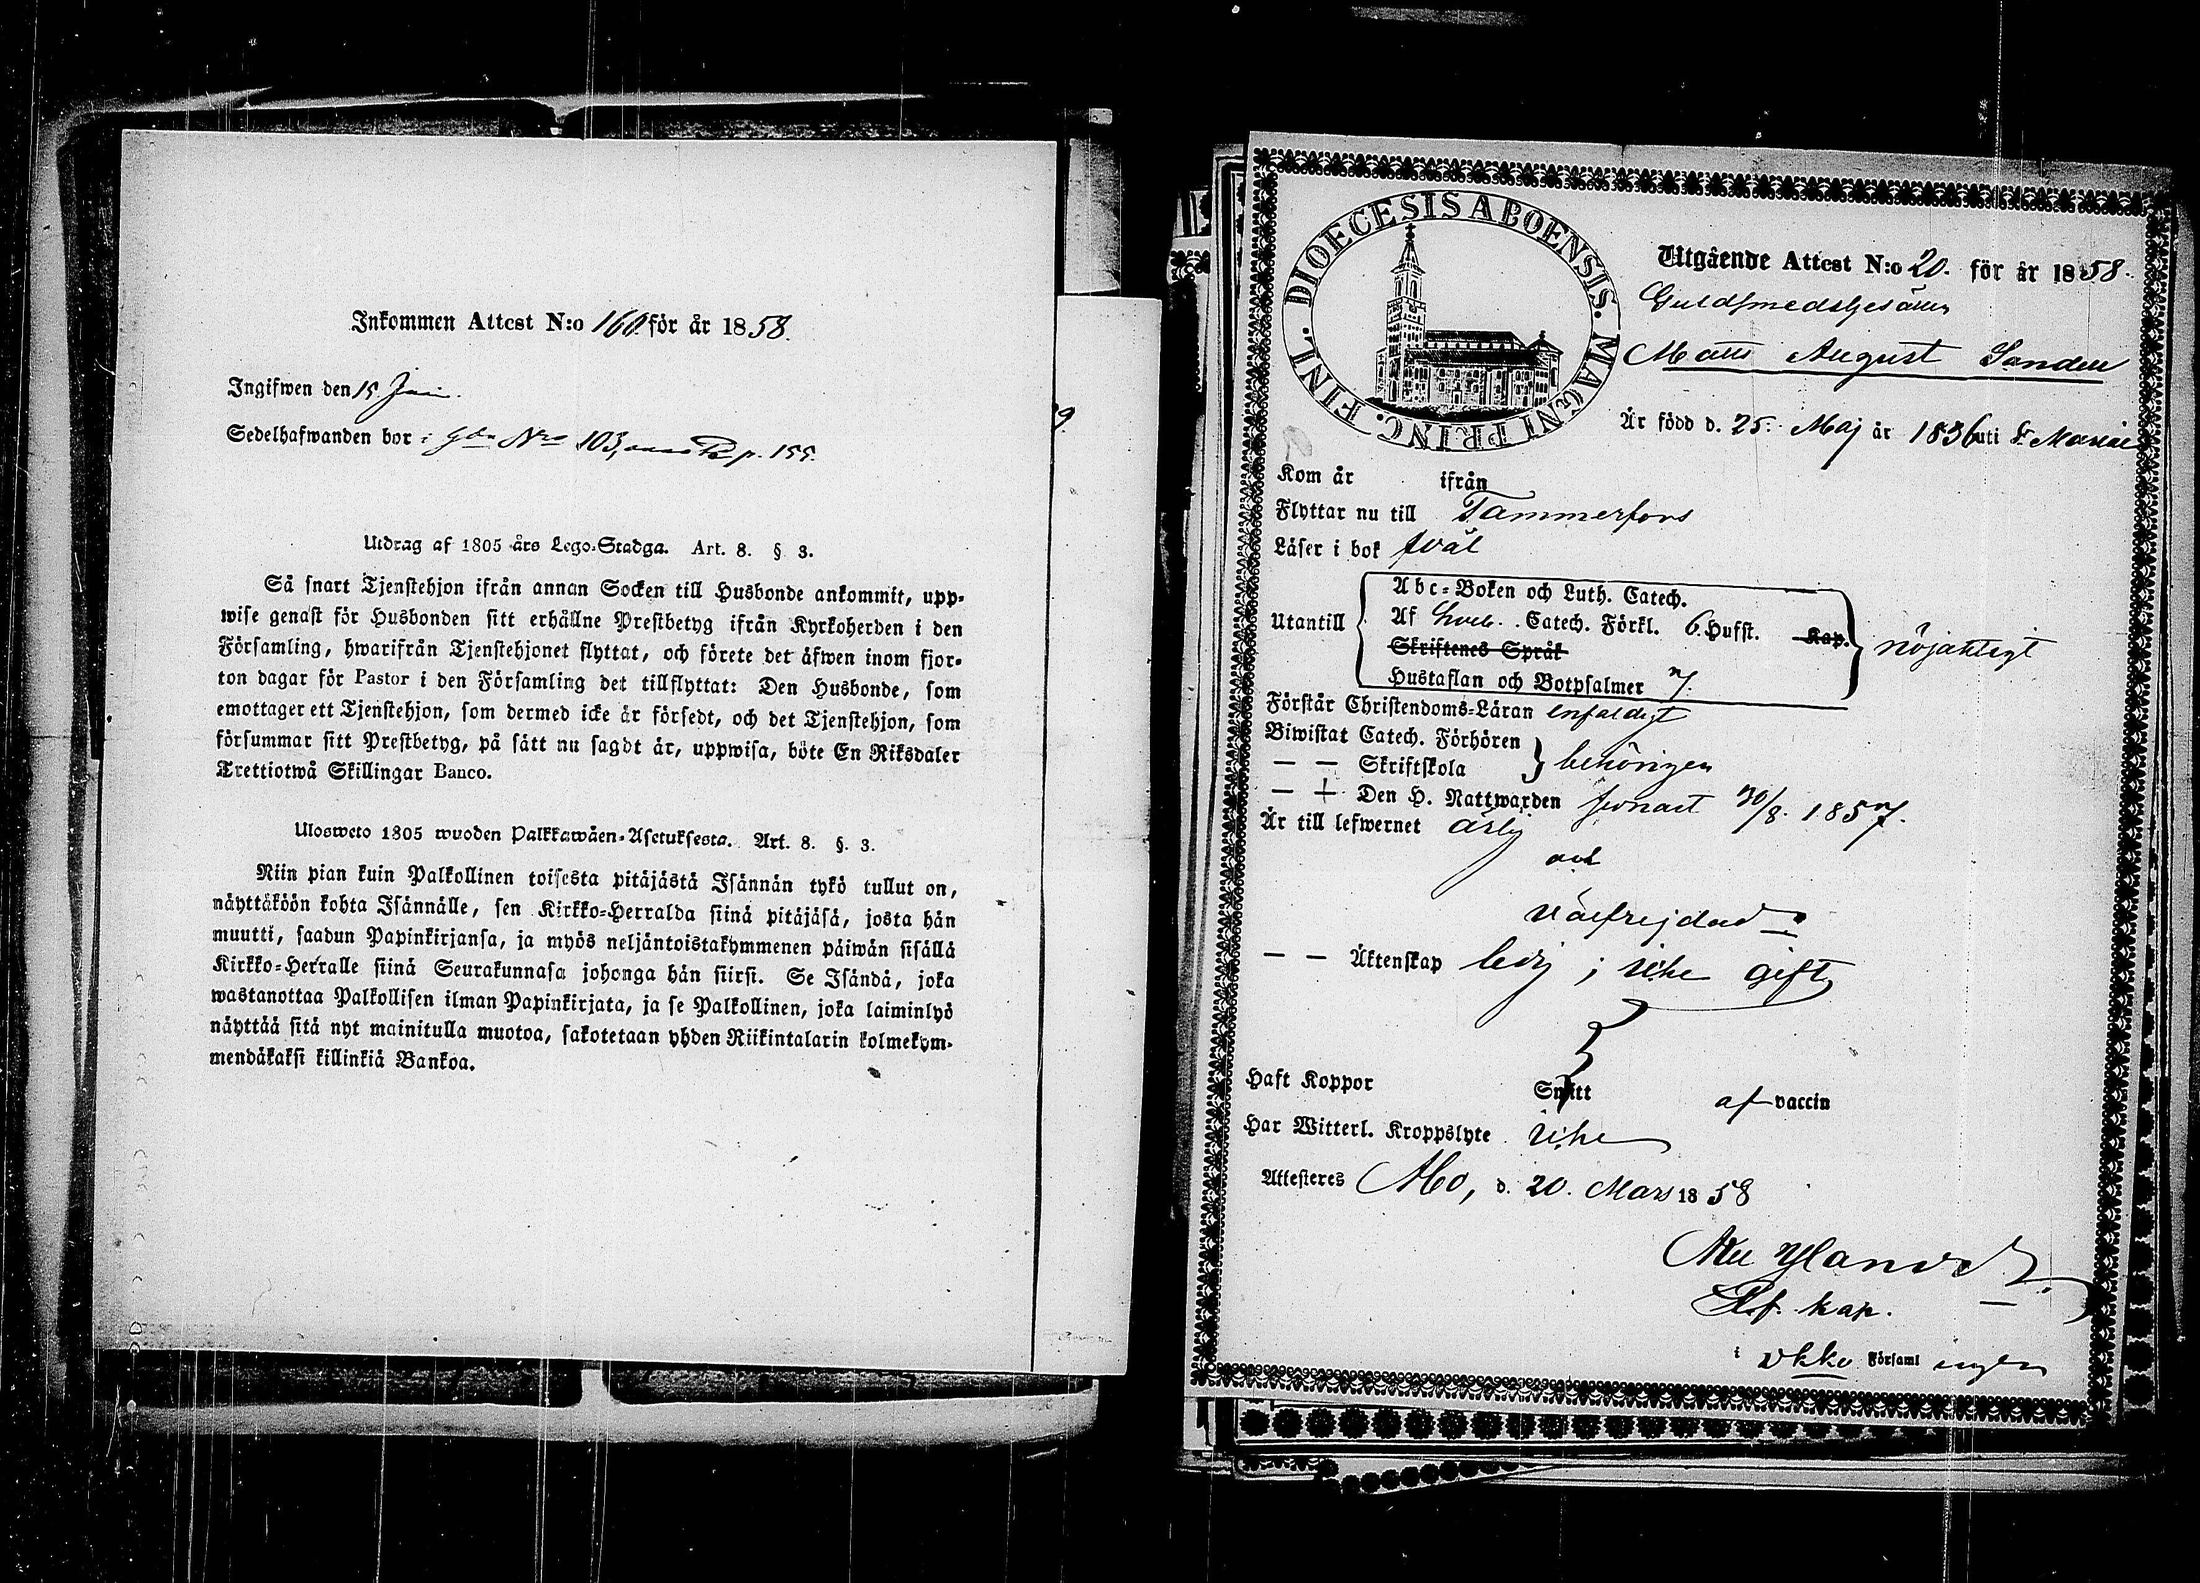 Inkommen Attest N:o 160 för år 1858.
Ingifwen den 15 Juni.
Sedelhafwanden bor i gdn Nro 103, p. 155.
Utdrag af 1805 års Lego-Stadga. Art. 8. § 3.
Så snart Tjenstehjon ifrån annan Socken till Husbonde ankommit, upp-
wise genast för Husbonden sitt erhållne Prestbetyg ifrån Kyrkoherden i den
Församling, hwarifrån Tjenstehjonet flyttat, och förete det äfwen inom fjor-
ton dagar för Pastor i den Församling det tillflyttat: Den Husbonde, som
emottager ett Tjenstehjon, som dermed icke är försedt, och det Tjenstehjon, som
försummar sitt Prestbetyg, på sätt nu sagdt är, uppwisa, böte En Riksdaler
Trettiotwå Skillingar Banco.
Ulosweto 1805 wuoden Palkkawäen-Asetuksesta. Art. 8. §. 3.
Niin pian kuin Palkollinen toisesta pitäjästä Isännän tykö tullut on,
näyttäköön kohta Isännälle, sen Kirkko-Herralda siinä pitäjäsä, josta hän
muutti, saadun Papinkirjansa, ja myös neljäntoistakymmenen päiwän sisällä
Kirkko-Herralle siinä Seurakunnasa johonga hän siirsi. Se Isändä, joka
wastanottaa Palkollisen ilman Papinkirjata, ja se Palkollinen, joka laiminlyö
näyttää sitä nyt mainitulla muotoa, sakotetaan yhden Riikintalarin kolmekym-
mendäkaksi killinkiä Bankoa.
9.
DIOECESIS ABOENSIS. MAGNI PRINC. FINL.
Utgående Attest N:o 20. för år 1858.
Guldsmedsgesällen
Matts August Sandell
Är född d. 25. Maj år 1836 uti St Mariæ
Kom år ifrån
Flyttar nu till Tammerfors
Läser i bok swäl
Utantill
Abc-Boken och Luth. Catech.
Af Sveb. Catech. Förkl. 6. Hufst. Kap.
Skriftenes Språk
Hustaflan och Botpsalmer 7.
nöjaktigt
Förstår Christendoms-Läran enfaldigt
Biwistat Catech. Förhören
— — Skriftskola
behörigen
— — Den H. Nattwarden senast 30/8. 1857.
Är till lefwernet ärlig
och
väl frejdad
— — Äktenskap ledig; icke gift
Haft Koppor Smitt af vaccin
Har Witterl. Kroppslyte icke
Attesteres Åbo, d. 20. Mars 1858
kap.
i Församlingen